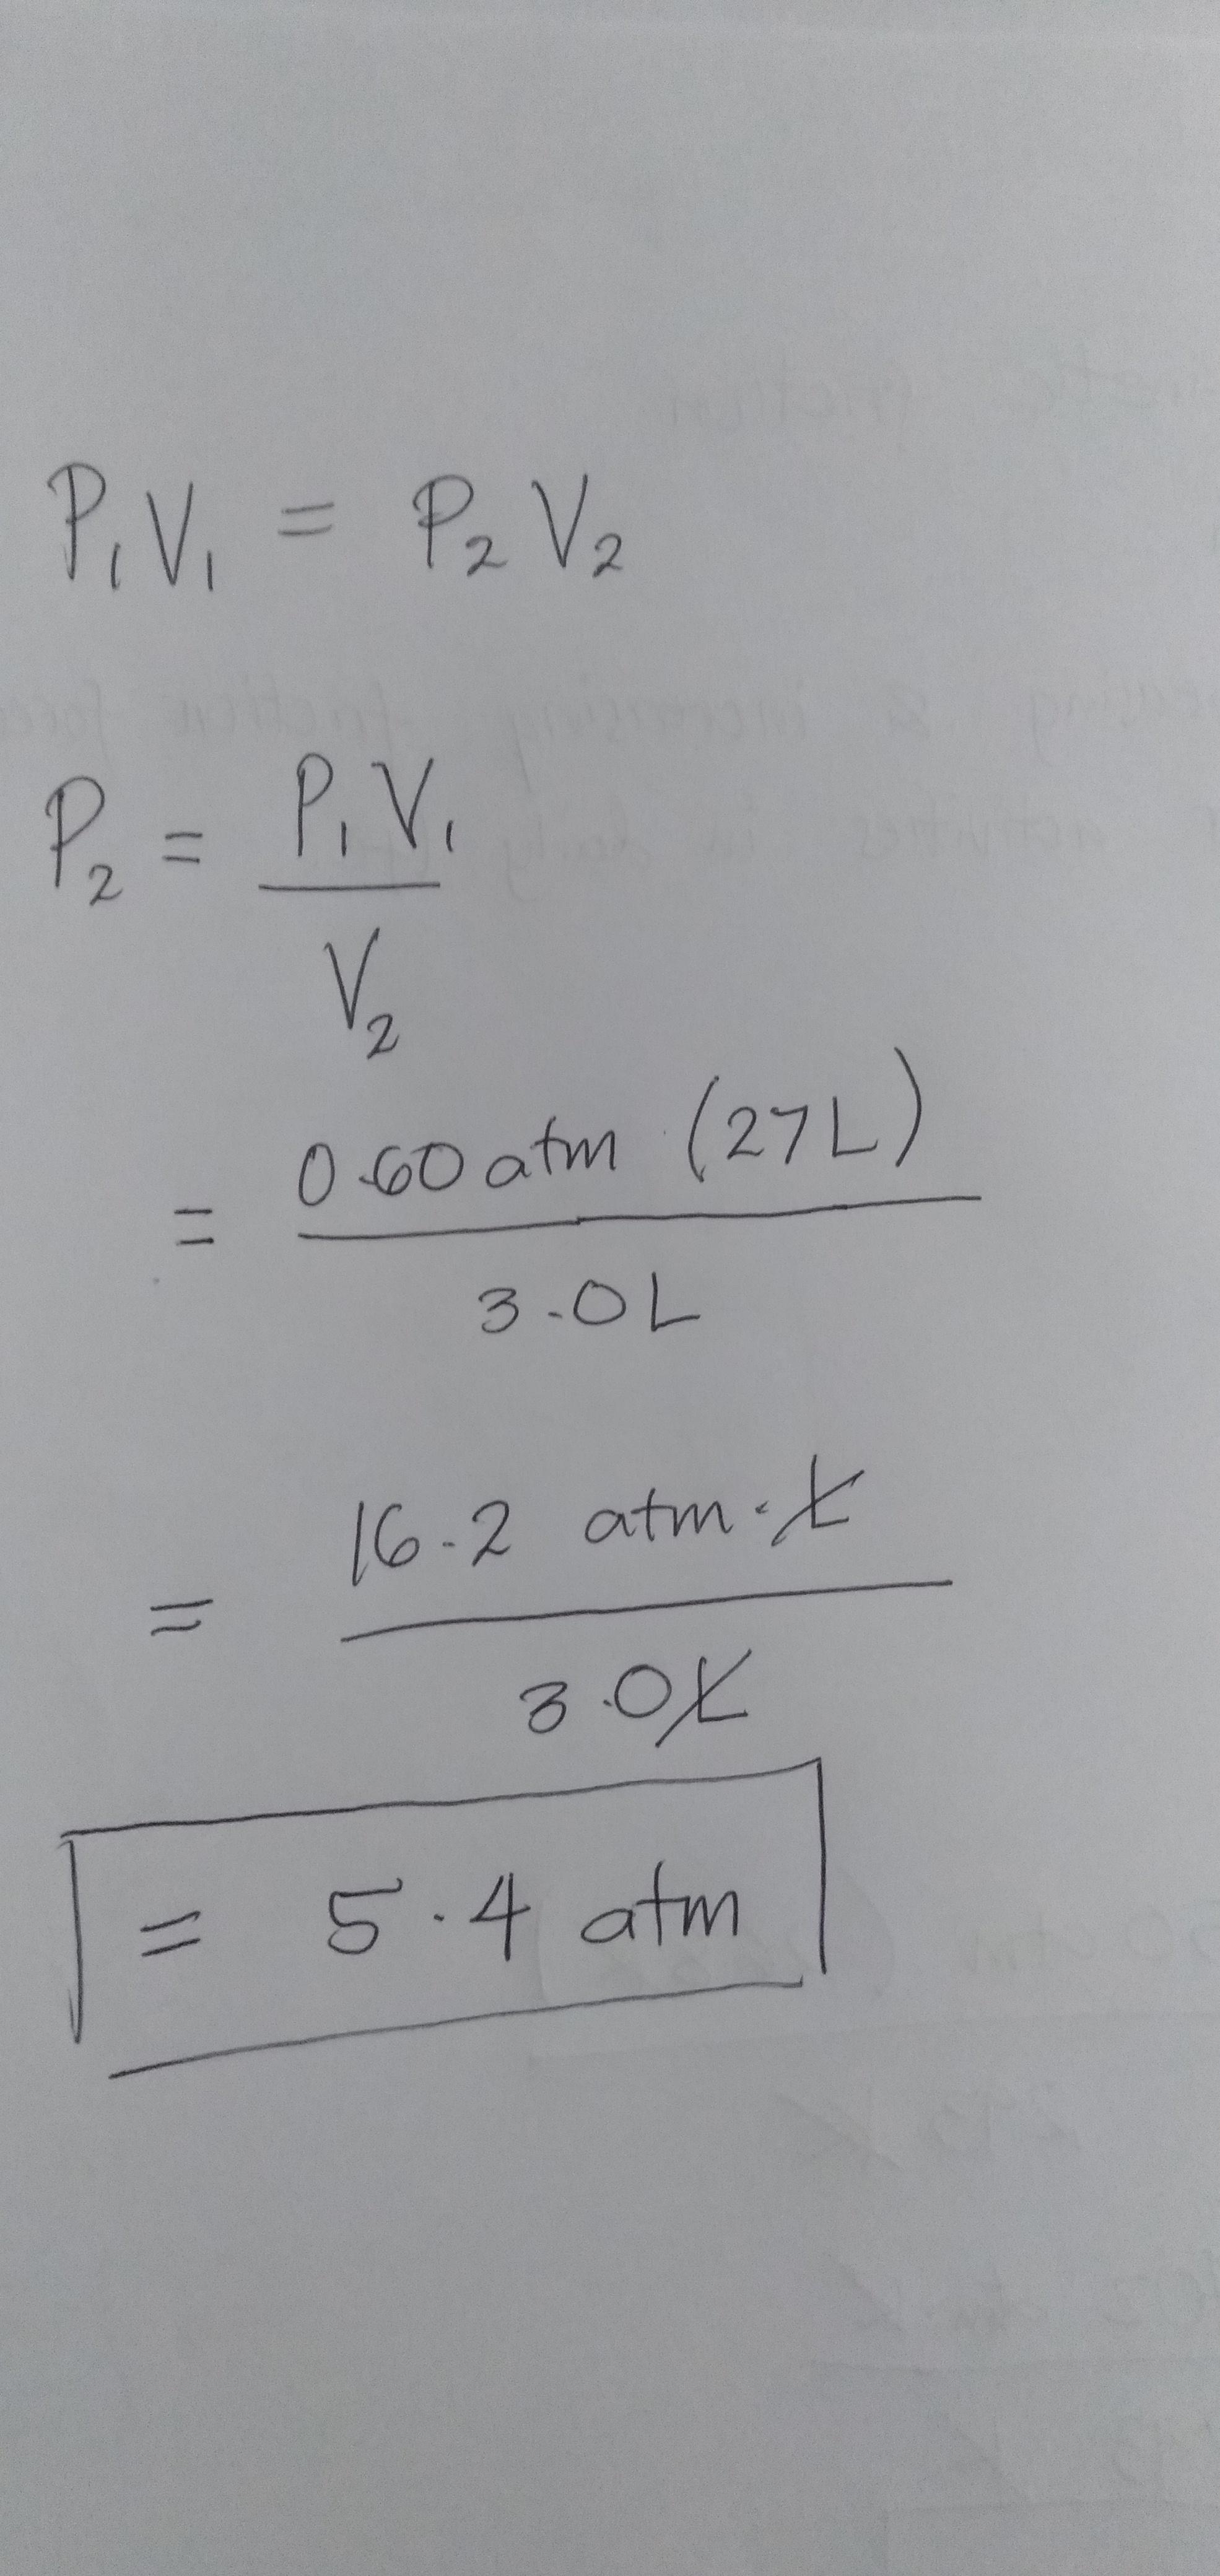 P₁V₁ = P₂V₂
P₂ = P₁V₁
V₂
= 0.60 atm (27L)
3.0L
= 16.2 atm·L
3.0L
= 5.4 atm